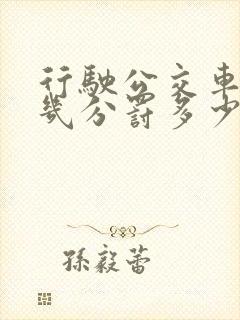 行駛公交車
幾分罰多少
孫毅蕾